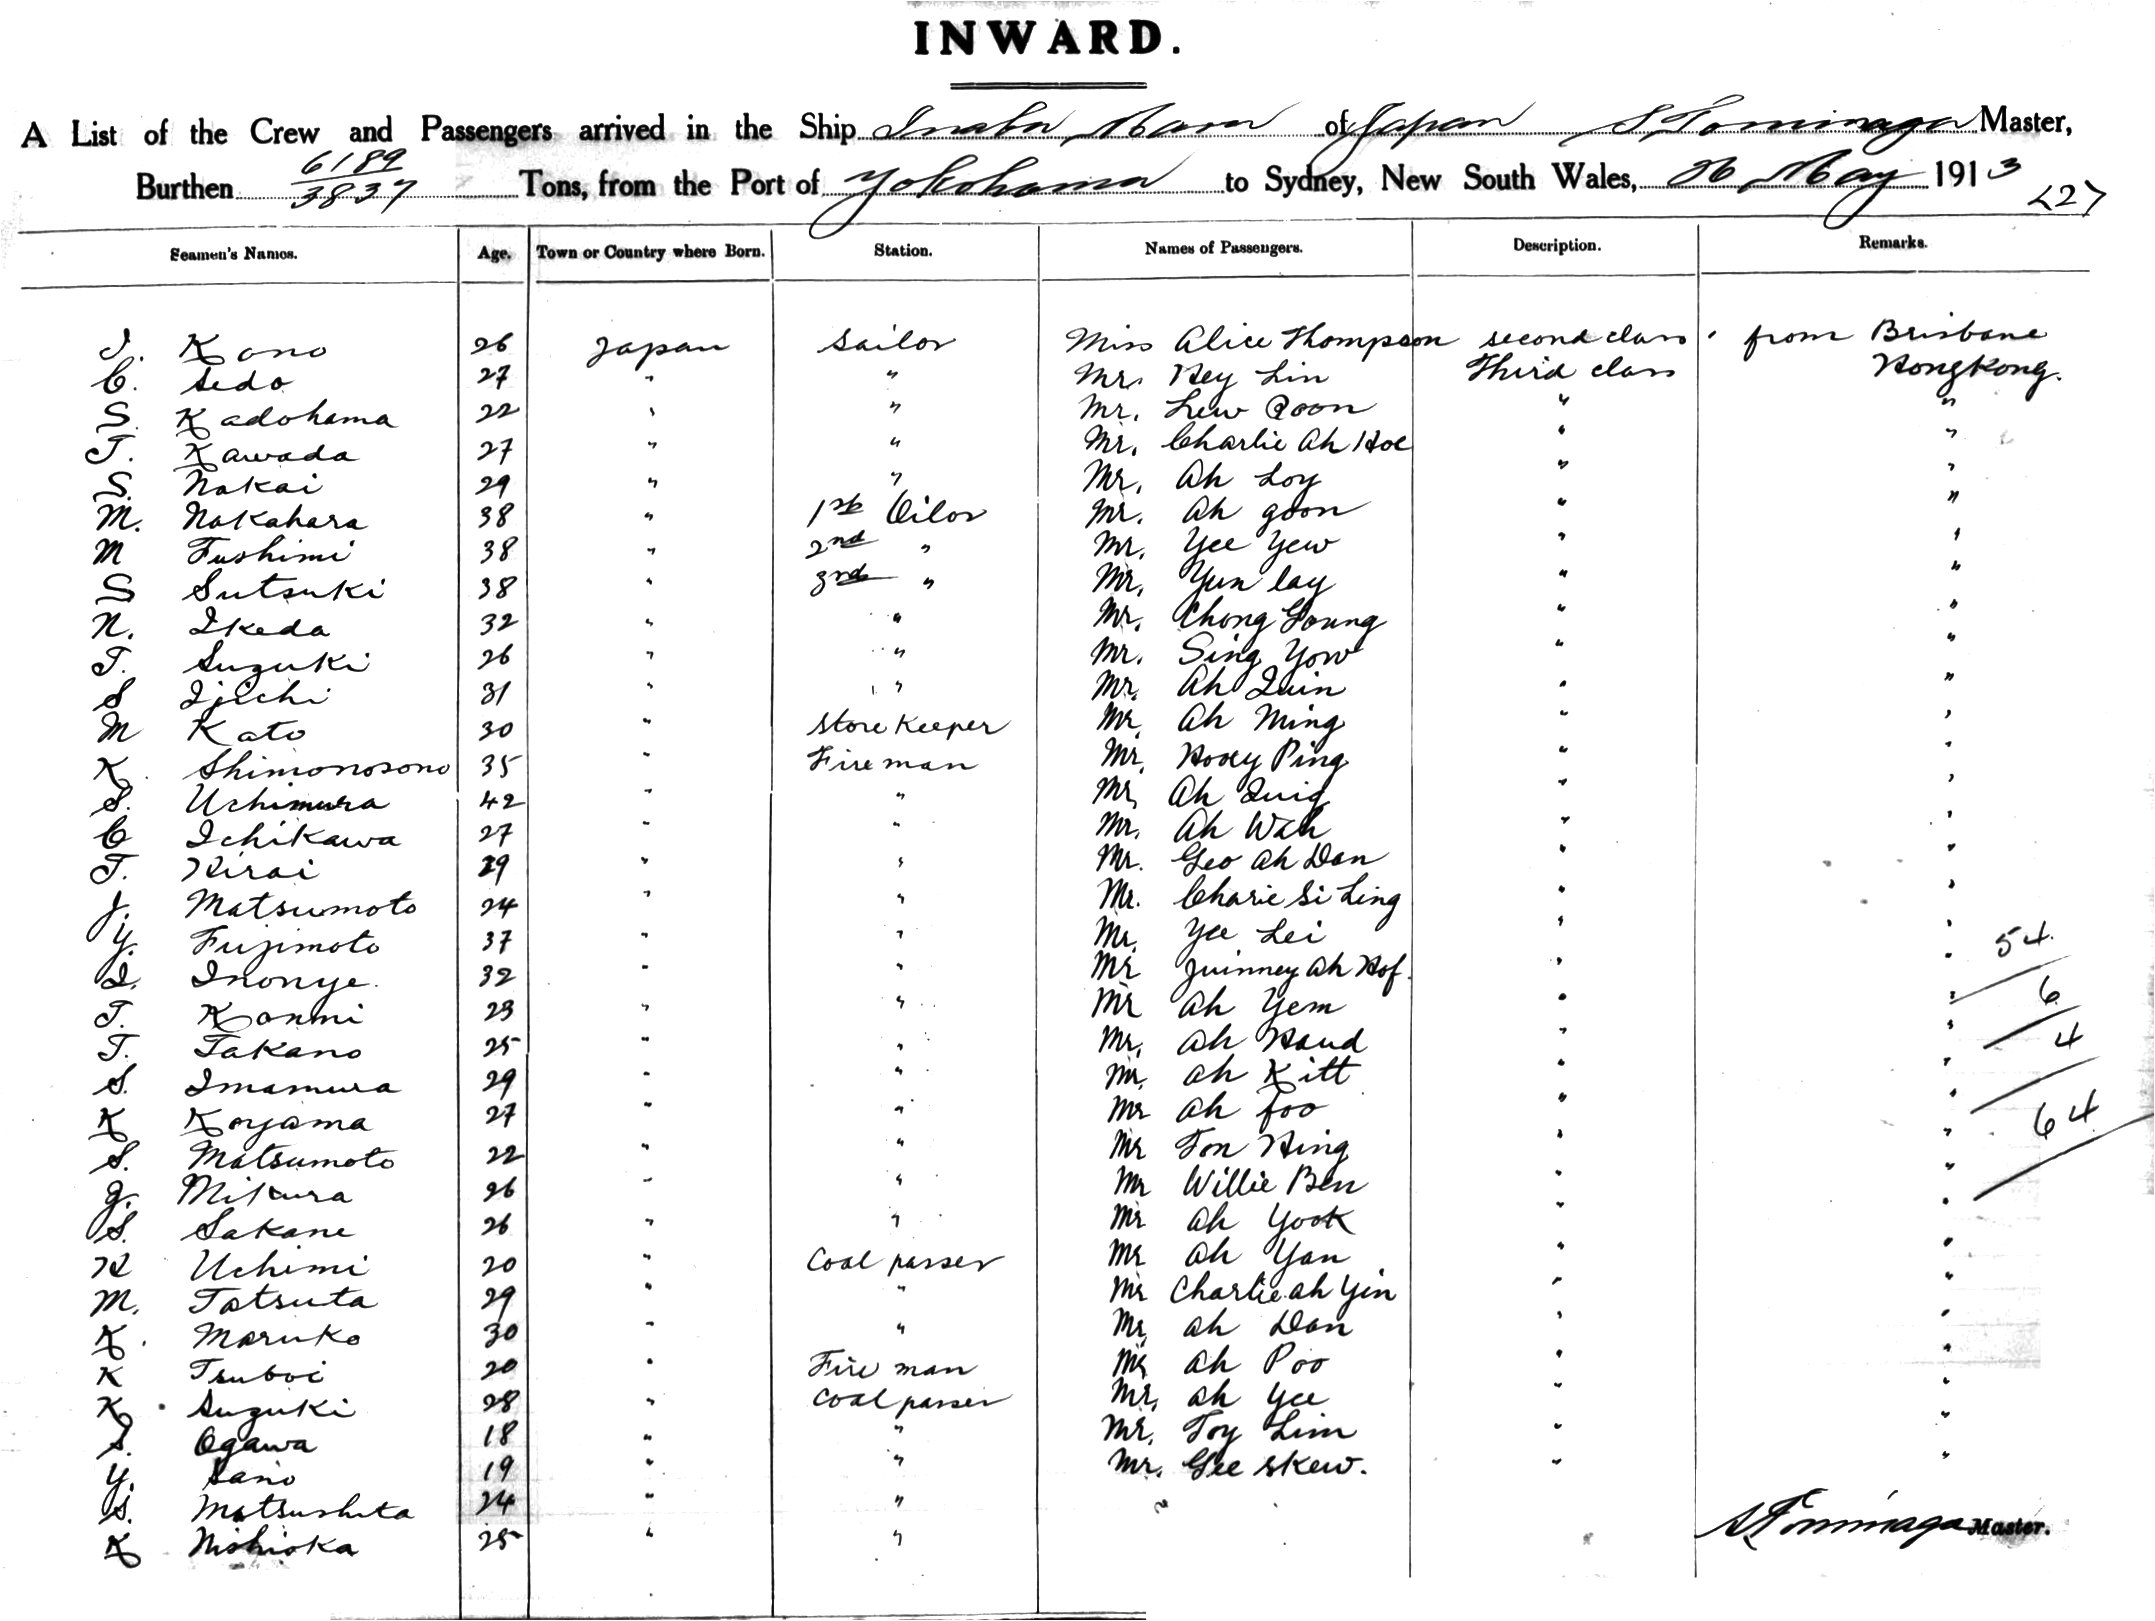 INWARD.
A List of the Crew and Passengers arrived in the Ship Inaba Maru of Japan S Tominaga Master,
Burthen 6189 / 3837 Tons, from the Port of Yokohama to Sydney, New South Wales, 26 May 1913
<27>
Seamen's Names. Age. Town or Country where Born. Station. Names of Passengers. Description. Remarks.
I. Kono 26 Japan Sailor Miss Alice Thompson second class from Brisbane
C. Sedo 27 " " Mr. Hey Lin Third class Hongkong.
S. Kadohama 22 " " Mr. Lew Poon " "
T. Kawada 27 " " Mr. Charlie Ah Hoe " "
S. Nakai 29 " " Mr. Ah Loy " "
M. Nakahara 38 " 1st Oilor Mr. Ah goon " "
M Fushimi 38 " 2nd " Mr. Yee Yew " "
S Sutsuki 38 " 3rd " Mr. Yun lay " "
N. Ikeda 32 " " Mr. Chong Goung " "
T. Suzuki 26 " " Mr. Sing Yow " "
S Ijichi 31 " " Mr. Ah Quin " "
M Kato 30 " Store Keeper Mr. Ah Ming " "
K. Shimonosono 35 " Fireman Mr. Hooy Ping " "
S. Uchimura 42 " " Mr. Ah Quig " "
C Ichikawa 27 " " Mr. Ah Wah " "
T. Hirai 29 " " Mr. Geo Ah Dan " "
J. Matsumoto 24 " " Mr. Charie Si Ling " "
Y. Fujimoto 37 " " Mr. Yee Lei " " 54.
I. Inonye. 32 " " Mr Juinney Ah Hof. " "
T. Konmi 23 " " Mr Ah Yem " " 6
T. Takano 25 " " Mr. Ah Haud " " 4
S. Imamura 29 " " Mr. Ah Kitt " "
K Koyama 27 " " Mr Ah foo " " 64
S. Matsumoto 22 " " Mr Ton Hing " "
G. Mikura 26 " " Mr Willie Ben " "
S. Sakane 26 " " Mr Ah Yook " "
H Uchimi 20 " Coal passer Mr Ah Yan " "
M. Tatsuta 29 " " Mr Charlie ah Yin " "
K. Maruko 30 " " Mr. Ah Dan " "
K Tsuboi 20 " Fire man Mr. Ah Poo " "
K. Suzuki 28 " Coal passer Mr. Ah Yee " "
S. Ogawa 18 " " Mr. Toy Lim " "
Y. Sano 19 " " Mr. Gee Skew. " "
S. Matsushita 24 " "
K Nishioka 25 " "
S Tominaga Master.